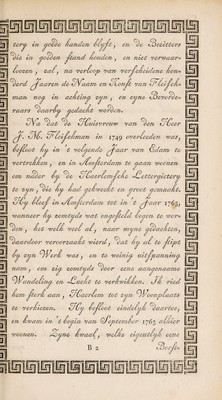 tery in goede handen blyft, en de Bezitters
die in goeden stand houden, en niet verwaar-
loozen, zal, na verloop van verscheidene hon-
derd Jaaren de Naam en Konst van Fleisch-
man nog in achting zyn, en zyne Bevorde-
raars daarby gedacht worden.
Na dat de Huisvrouw van den Heer
J. M. Fleischman in 1749 overleeden was,
besloot hy in 't volgende Jaar van Edam te
vertrekken, en in Amsterdam te gaan woonen
om nader by de Haerlemsche Lettergietery
te zyn, die hy had gekweekt en groot gemaakt.
Hy bleef in Amsterdam tot in 't Jaar
wanneer hy eenigszins wat ongesteld begon te wor-
den, het welk veel al, naar myne gedachten,
daardoor veroorzaakt wierd, dat hy al te stipt
by zyn Werk was, en te weinig uitspanning
nam, om zig somtyds door eene aangenaame
Wandeling en Lucht te verkwikken. Ik ried
hem sterk aan, Haerlem tot zyn Woonplaats
te verkiezen. Hy besloot eindelyk daartoe,
en kwam in 't begin van September 1765 alhier
woonen. Zyne kwaal, welke eigentlyk eene
B 2 Boesem